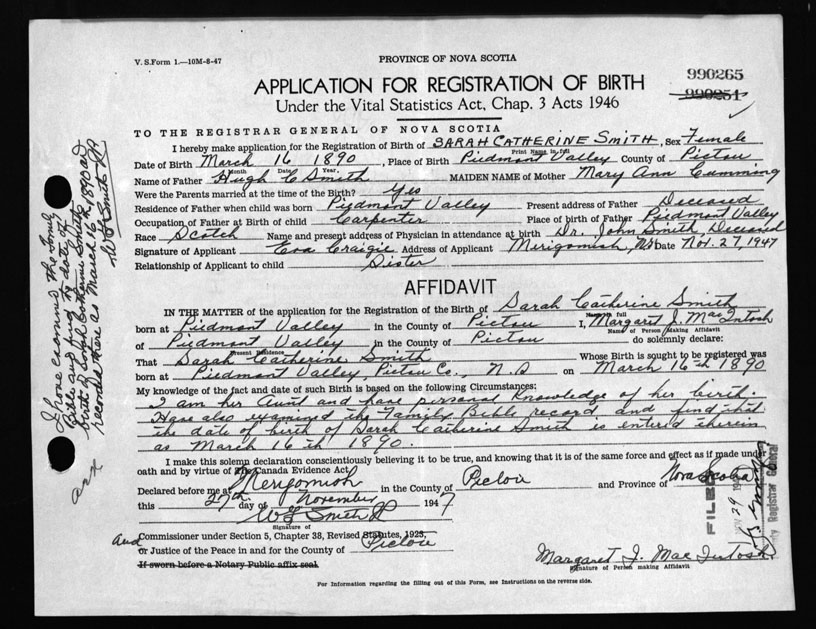 V. S. Form 1.—10M-8-47
PROVINCE OF NOVA SCOTIA
990265
990251
APPLICATION FOR REGISTRATION OF BIRTH
Under the Vital Statistics Act, Chap. 3 Acts 1946
TO THE REGISTRAR GENERAL OF NOVA SCOTIA
I hereby make application for the Registration of Birth of SARAH CATHERINE SMITH, Sex Female
Print Name in full
Date of Birth March 16 1890, Place of Birth Piedmont Valley County of Pictou
Month Date Year
Name of Father Hugh C Smith MAIDEN NAME of Mother Mary Ann Cumming
Were the Parents married at the time of the Birth? Yes
Residence of Father when child was born Piedmont Valley Present address of Father Deceased
Occupation of Father at Birth of child Carpenter Place of birth of Father Piedmont Valley
Race Scotch Name and present address of Physician in attendance at birth Dr. John Smith, Deceased
Signature of Applicant Eva Craigie Address of Applicant Merigomish, NS Date Nov. 27, 1947
Relationship of Applicant to child Sister
AFFIDAVIT
IN THE MATTER of the application for the Registration of the Birth of Sarah Catherine Smith
Name in full
born at Piedmont Valley in the County of Pictou I, Margaret J. MacIntosh
Name of Person Making Affidavit
of Piedmont Valley in the County of Pictou do solemnly declare:
Present Residence
That Sarah Catherine Smith Whose Birth is sought to be registered was
born at Piedmont Valley, Pictou Co., N.S on March 16th 1890
My knowledge of the fact and date of such Birth is based on the following Circumstances:
I am her Aunt and have personal knowledge of her birth.
Have also examined the Family Bible record and find that
the date of birth of Sarah Catherine Smith is entered therein
as March 16th 1890.
I make this solemn declaration conscientiously believing it to be true, and knowing that it is of the same force and effect as if made under
oath and by virtue of The Canada Evidence Act.
Declared before me at Merigomish in the County of Pictou and Province of Nova Scotia
this 27th day of November 1947
W S Smith JP
Signature of
Commissioner under Section 5, Chapter 38, Revised Statutes, 1923,
and
or Justice of the Peace in and for the County of Pictou
If sworn before a Notary Public affix seal
Margaret J. MacIntosh
Signature of Person making Affidavit
For Information regarding the filling out of this Form, see Instructions on the reverse side.
I have examined the Family
Bible and find ye date of
birth of Sarah Catherine Smith
recorded there as March 16th 1890 and
W S Smith JP
FILED
29
Registrar General